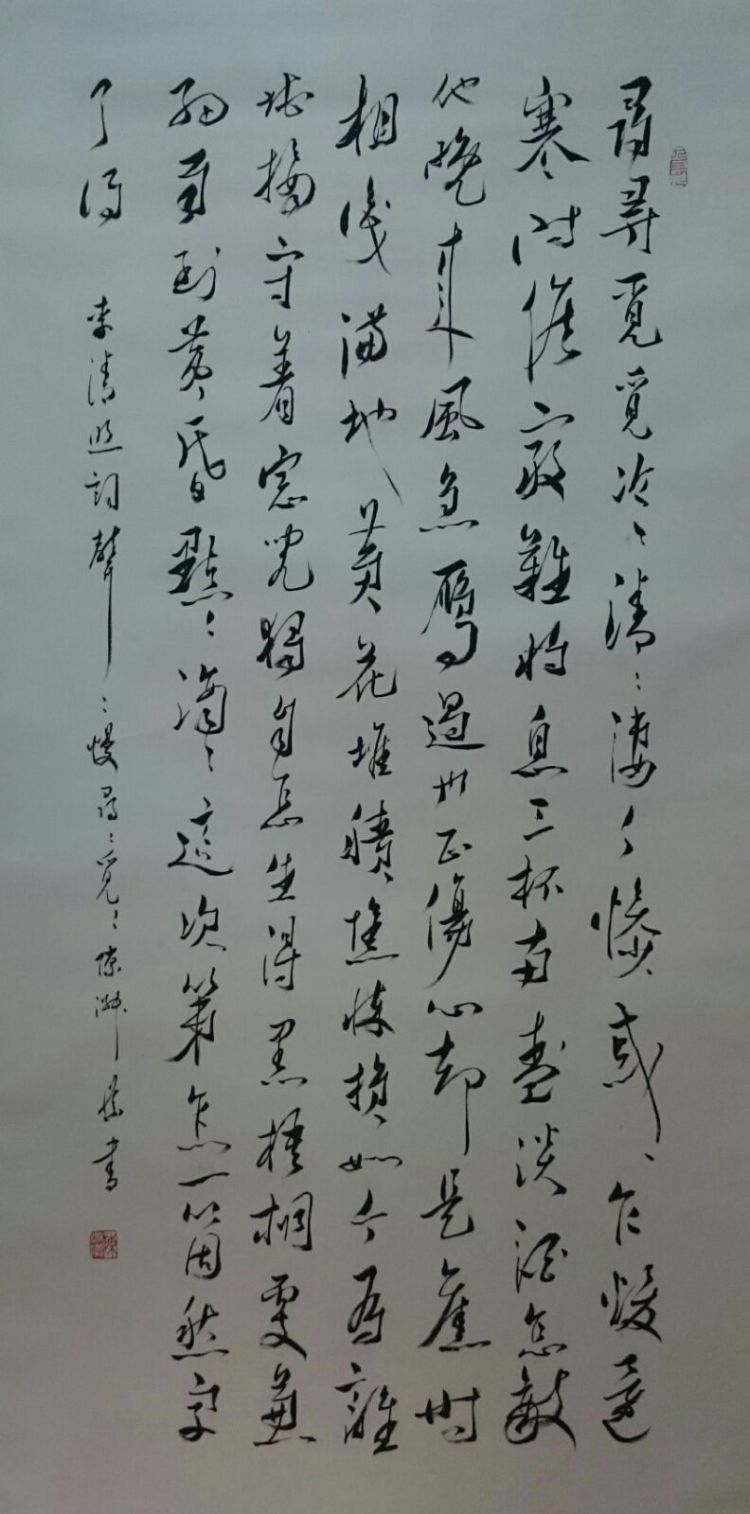 尋尋覓覓冷〻清〻凄〻慘慼〻乍煖還
寒時候最難將息三杯兩盞淡酒怎敵
他曉來風急鴈過也正傷心却是舊時
相識滿地黃花堆積憔悴損如今有誰
堪摘守着窓兒獨自怎生得黑梧桐更兼
細雨到黃昏點〻滴〻這次第怎一箇愁字
了得
李清照詞聲〻慢尋〻覓〻 書